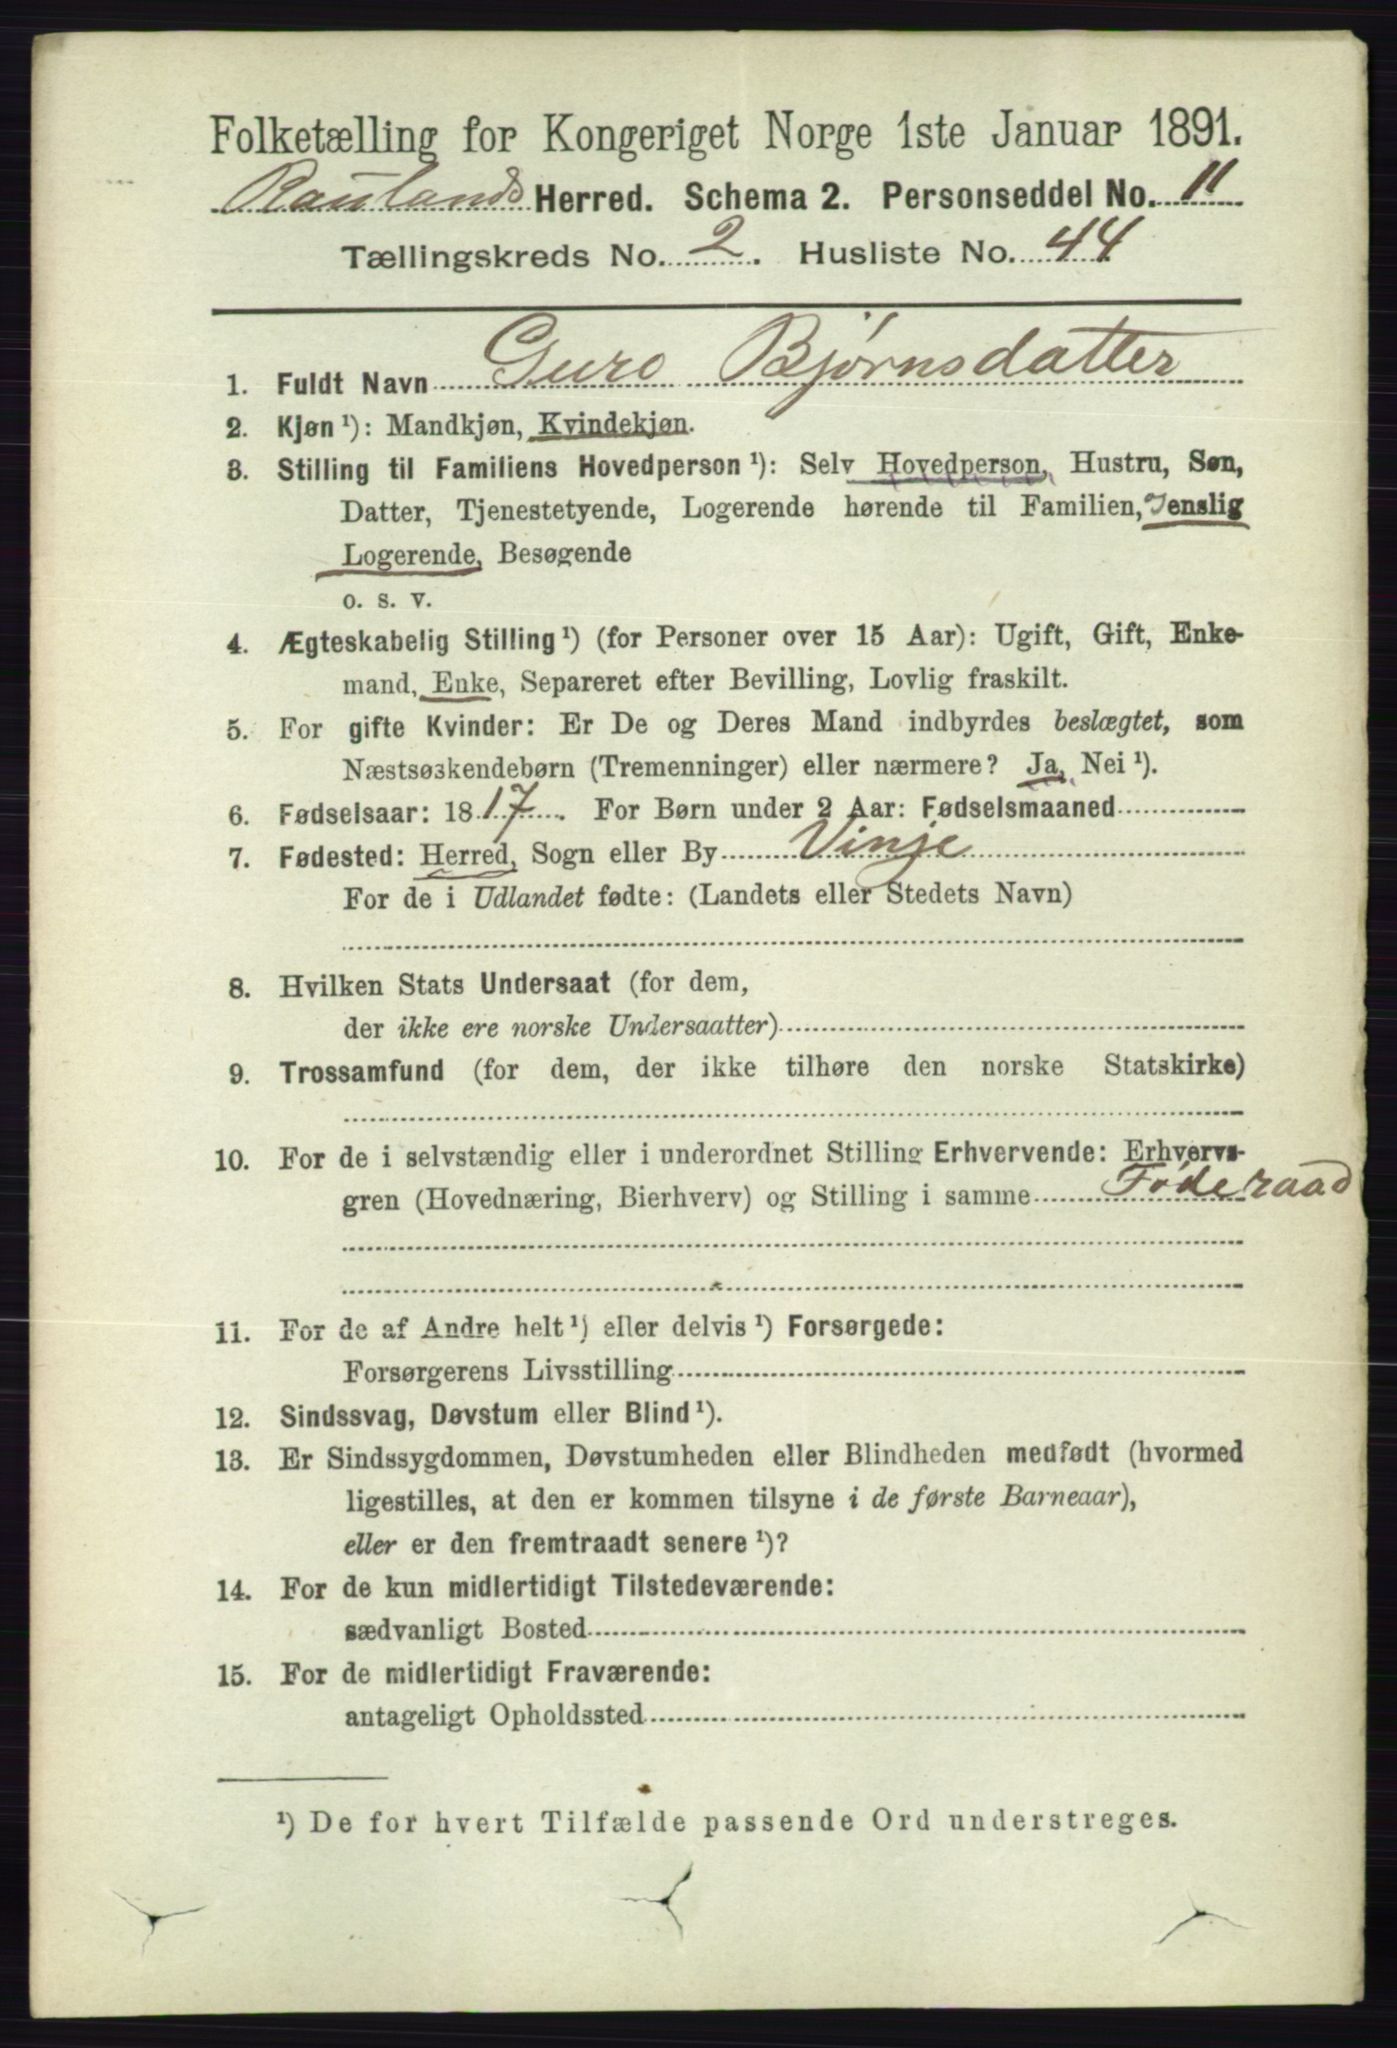 Folketælling for Kongeriget Norge 1ste Januar 1891.
Raulands Herred. Schema 2. Personseddel No. 11
Tællingskreds No. 2. Husliste No. 44
1. Fuldt Navn Guro Bjørnsdatter
2. Kjøn ¹): Mandkjøn, Kvindekjøn.
3. Stilling til Familiens Hovedperson ¹): Selv Hovedperson, Hustru, Søn,
Datter, Tjenestetyende, Logerende hørende til Familien, enslig
Logerende, Besøgende
o. s. v.
4. Ægteskabelig Stilling ¹) (for Personer over 15 Aar): Ugift, Gift, Enke-
mand, Enke, Separeret efter Bevilling, Lovlig fraskilt.
5. For gifte Kvinder: Er De og Deres Mand indbyrdes beslægtet, som
Næstsøskendebørn (Tremenninger) eller nærmere? Ja, Nei ¹).
6. Fødselsaar: 1817. For Børn under 2 Aar: Fødselsmaaned
7. Fødested: Herred, Sogn eller By Vinje
For de i Udlandet fødte: (Landets eller Stedets Navn)
8. Hvilken Stats Undersaat (for dem,
der ikke ere norske Undersaatter)
9. Trossamfund (for dem, der ikke tilhøre den norske Statskirke)
10. For de i selvstændig eller i underordnet Stilling Erhvervende: Erhvervs-
gren (Hovednæring, Bierhverv) og Stilling i samme Føderaad
11. For de af Andre helt ¹) eller delvis ¹) Forsørgede:
Forsørgerens Livsstilling
12. Sindssvag, Døvstum eller Blind ¹).
13. Er Sindssygdommen, Døvstumheden eller Blindheden medfødt (hvormed
ligestilles, at den er kommen tilsyne i de første Barneaar),
eller er den fremtraadt senere ¹)?
14. For de kun midlertidigt Tilstedeværende:
sædvanligt Bosted
15. For de midlertidigt Fraværende:
antageligt Opholdssted
¹) De for hvert Tilfælde passende Ord understreges.